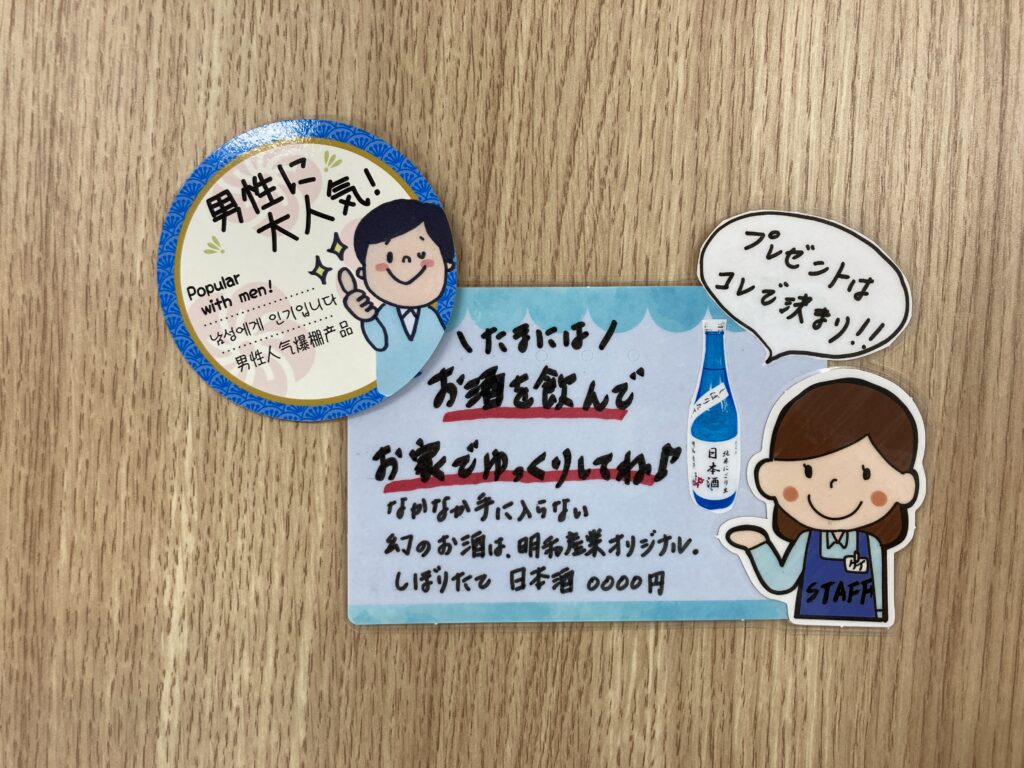 男性に
大人気!
Popular
with men!
남성에게 인기입니다
男性人气爆棚产品
プレゼントは
コレで決まり!!
\ たまには /
お酒を飲んで
お家でゆっくりしてね♪
なかなか手に入らない
幻のお酒は、明和産業オリジナル。
しぼりたて 日本酒 0000円
しぼりたて
純米にごり生
日本酒
STAFF